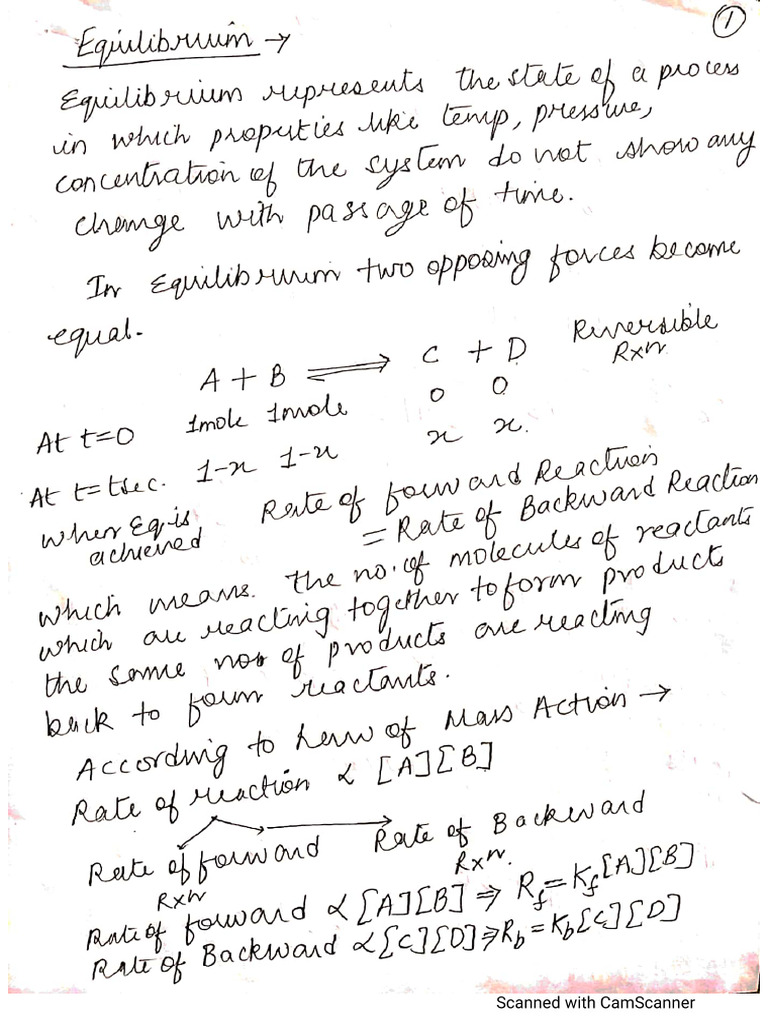 ①
Equilibrium →
Equilibrium represents the state of a process
in which properties like temp, pressure,
concentration of the system do not show any
change with passage of time.
In Equilibrium two opposing forces become
equal.
A + B ⇌ C + D Reversible Rxn
At t=0 1mole 1mole 0 0
At t=tsec. 1-x 1-x x x.
When Eq is achieved Rate of forward Reaction
= Rate of Backward Reaction
which means. the no. of molecules of reactants
which are reacting together to form product
the same nos of products are reacting
back to form reactants.
According to Law of Mass Action →
Rate of reaction ∝ [A][B]
Rate of forward Rxn Rate of Backward Rxn.
Rate of forward ∝ [A][B] ⇒ R_f = K_f[A][B]
Rate of Backward ∝ [C][D] ⇒ R_b = K_b[C][D]
Scanned with CamScanner